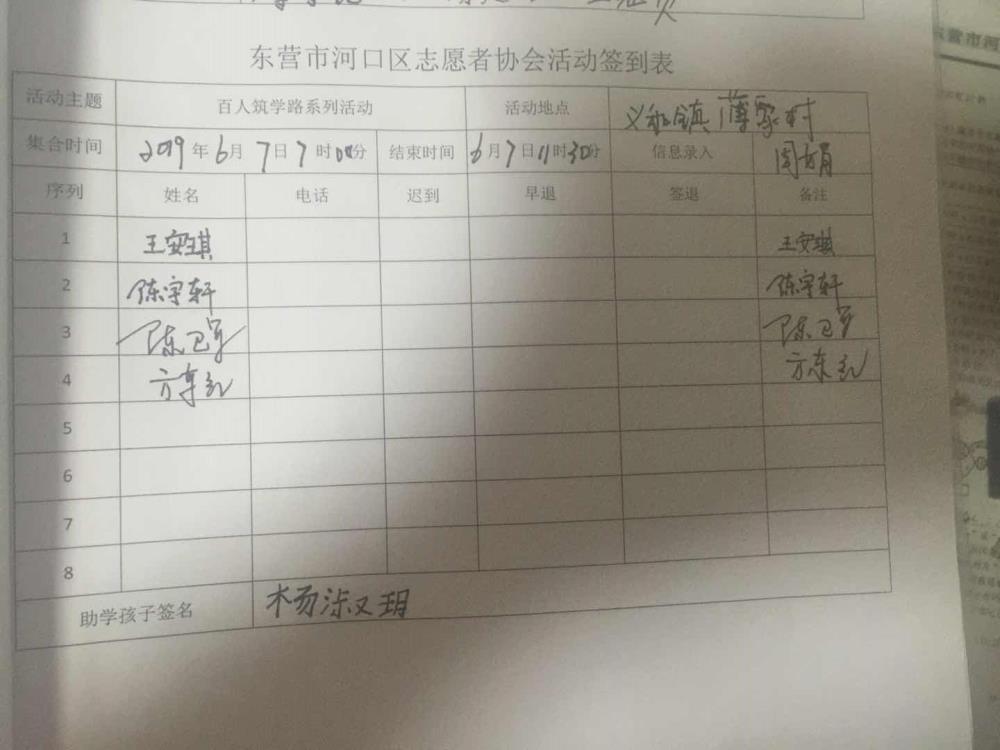 东营市河口区志愿者协会活动签到表
活动主题 百人筑学路系列活动 活动地点 义和镇薄家村
集合时间 2019年6月7日7时00分 结束时间 6月7日11时30分 信息录入
序列 姓名 电话 迟到 早退 签退 备注
1 王安琪 王安琪
2 陈宇轩 陈宇轩
3 陈卫军 陈卫军
4 方东红 方东红
5
6
7
8
助学孩子签名
东营市河